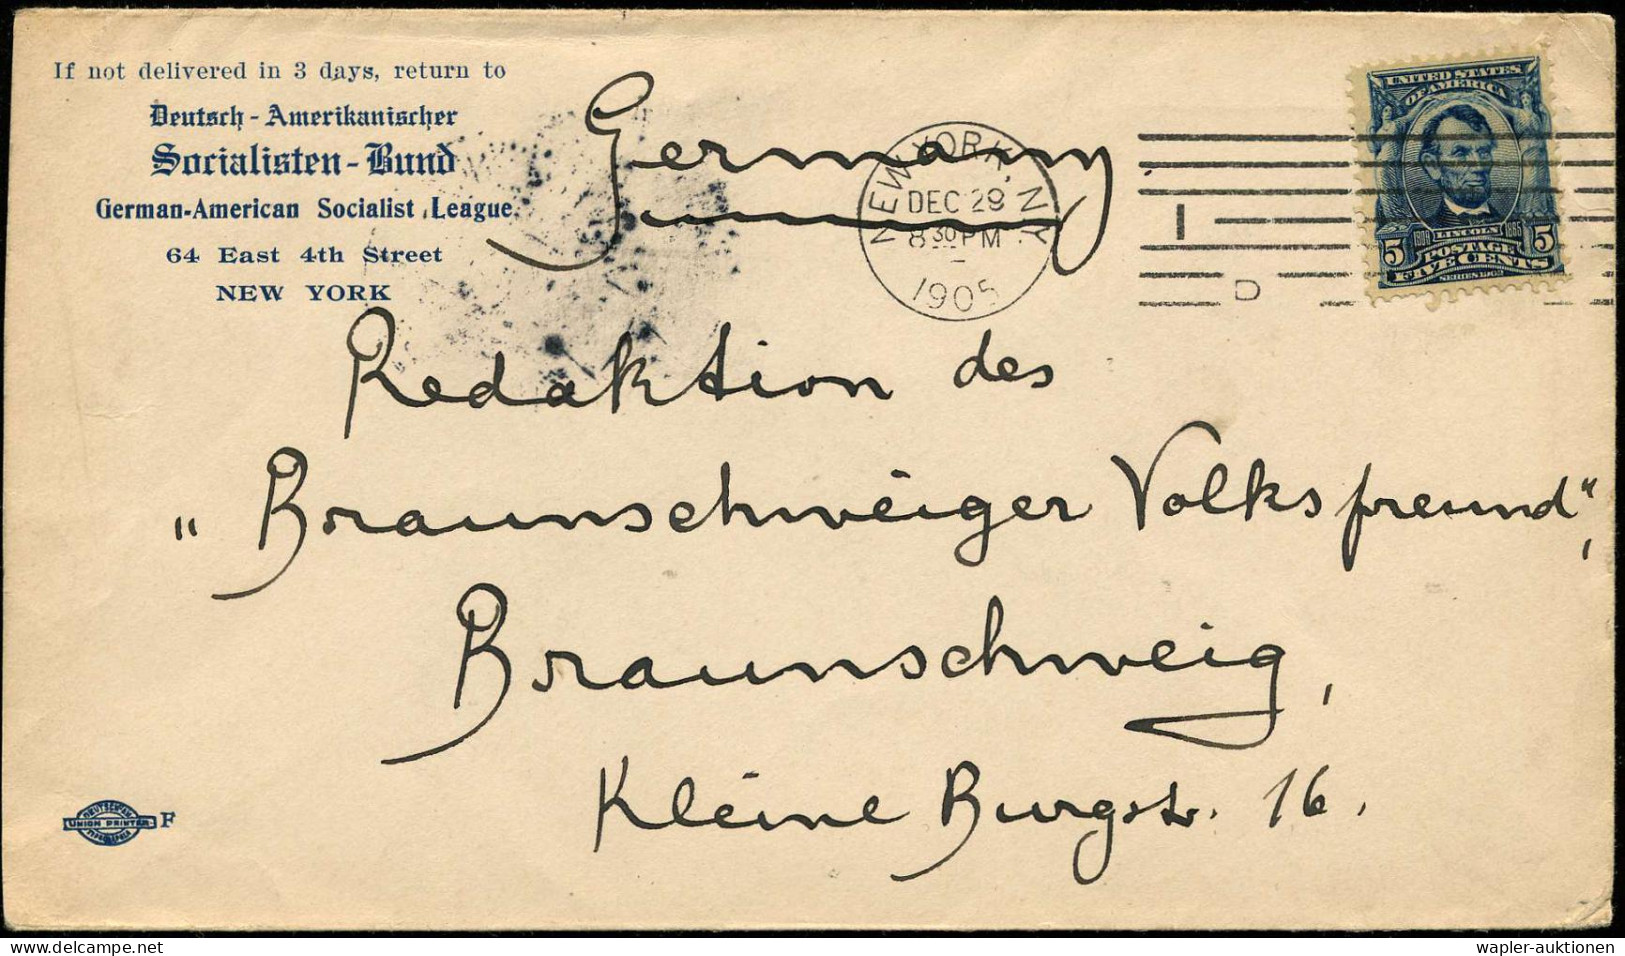 If not delivered in 3 days, return to
Deutsch-Amerikanischer
Socialisten-Bund
German-American Socialist League
64 East 4th Street
NEW YORK
Germany
NEW YORK, N.Y.
DEC 29
8 30 PM
1905
1
D
UNITED STATES
OF AMERICA
1809 LINCOLN 1865
5 POSTAGE 5
FIVE CENTS
SERIES 1902
Redaktion des
"Braunschweiger Volksfreund",
Braunschweig,
Kleine Burgstr. 16.
UNION PRINTER
F
delcampe.net
wapler-auktionen